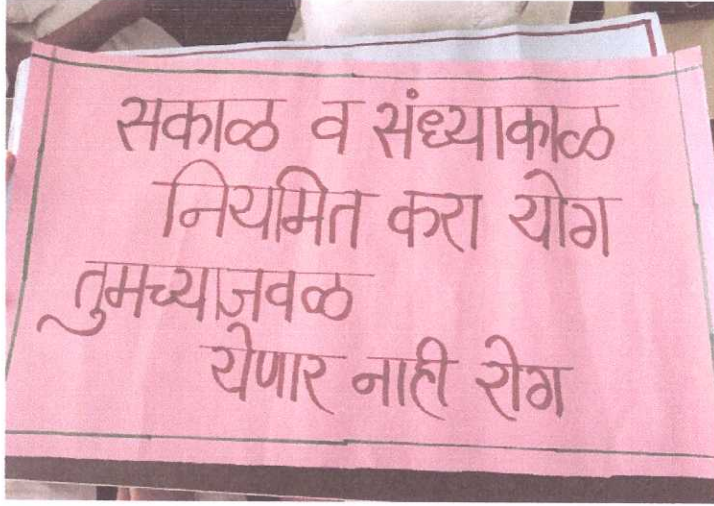 सकाळ व संध्याकाळ
नियमित करा योग
तुमच्याजवळ
येणार नाही रोग